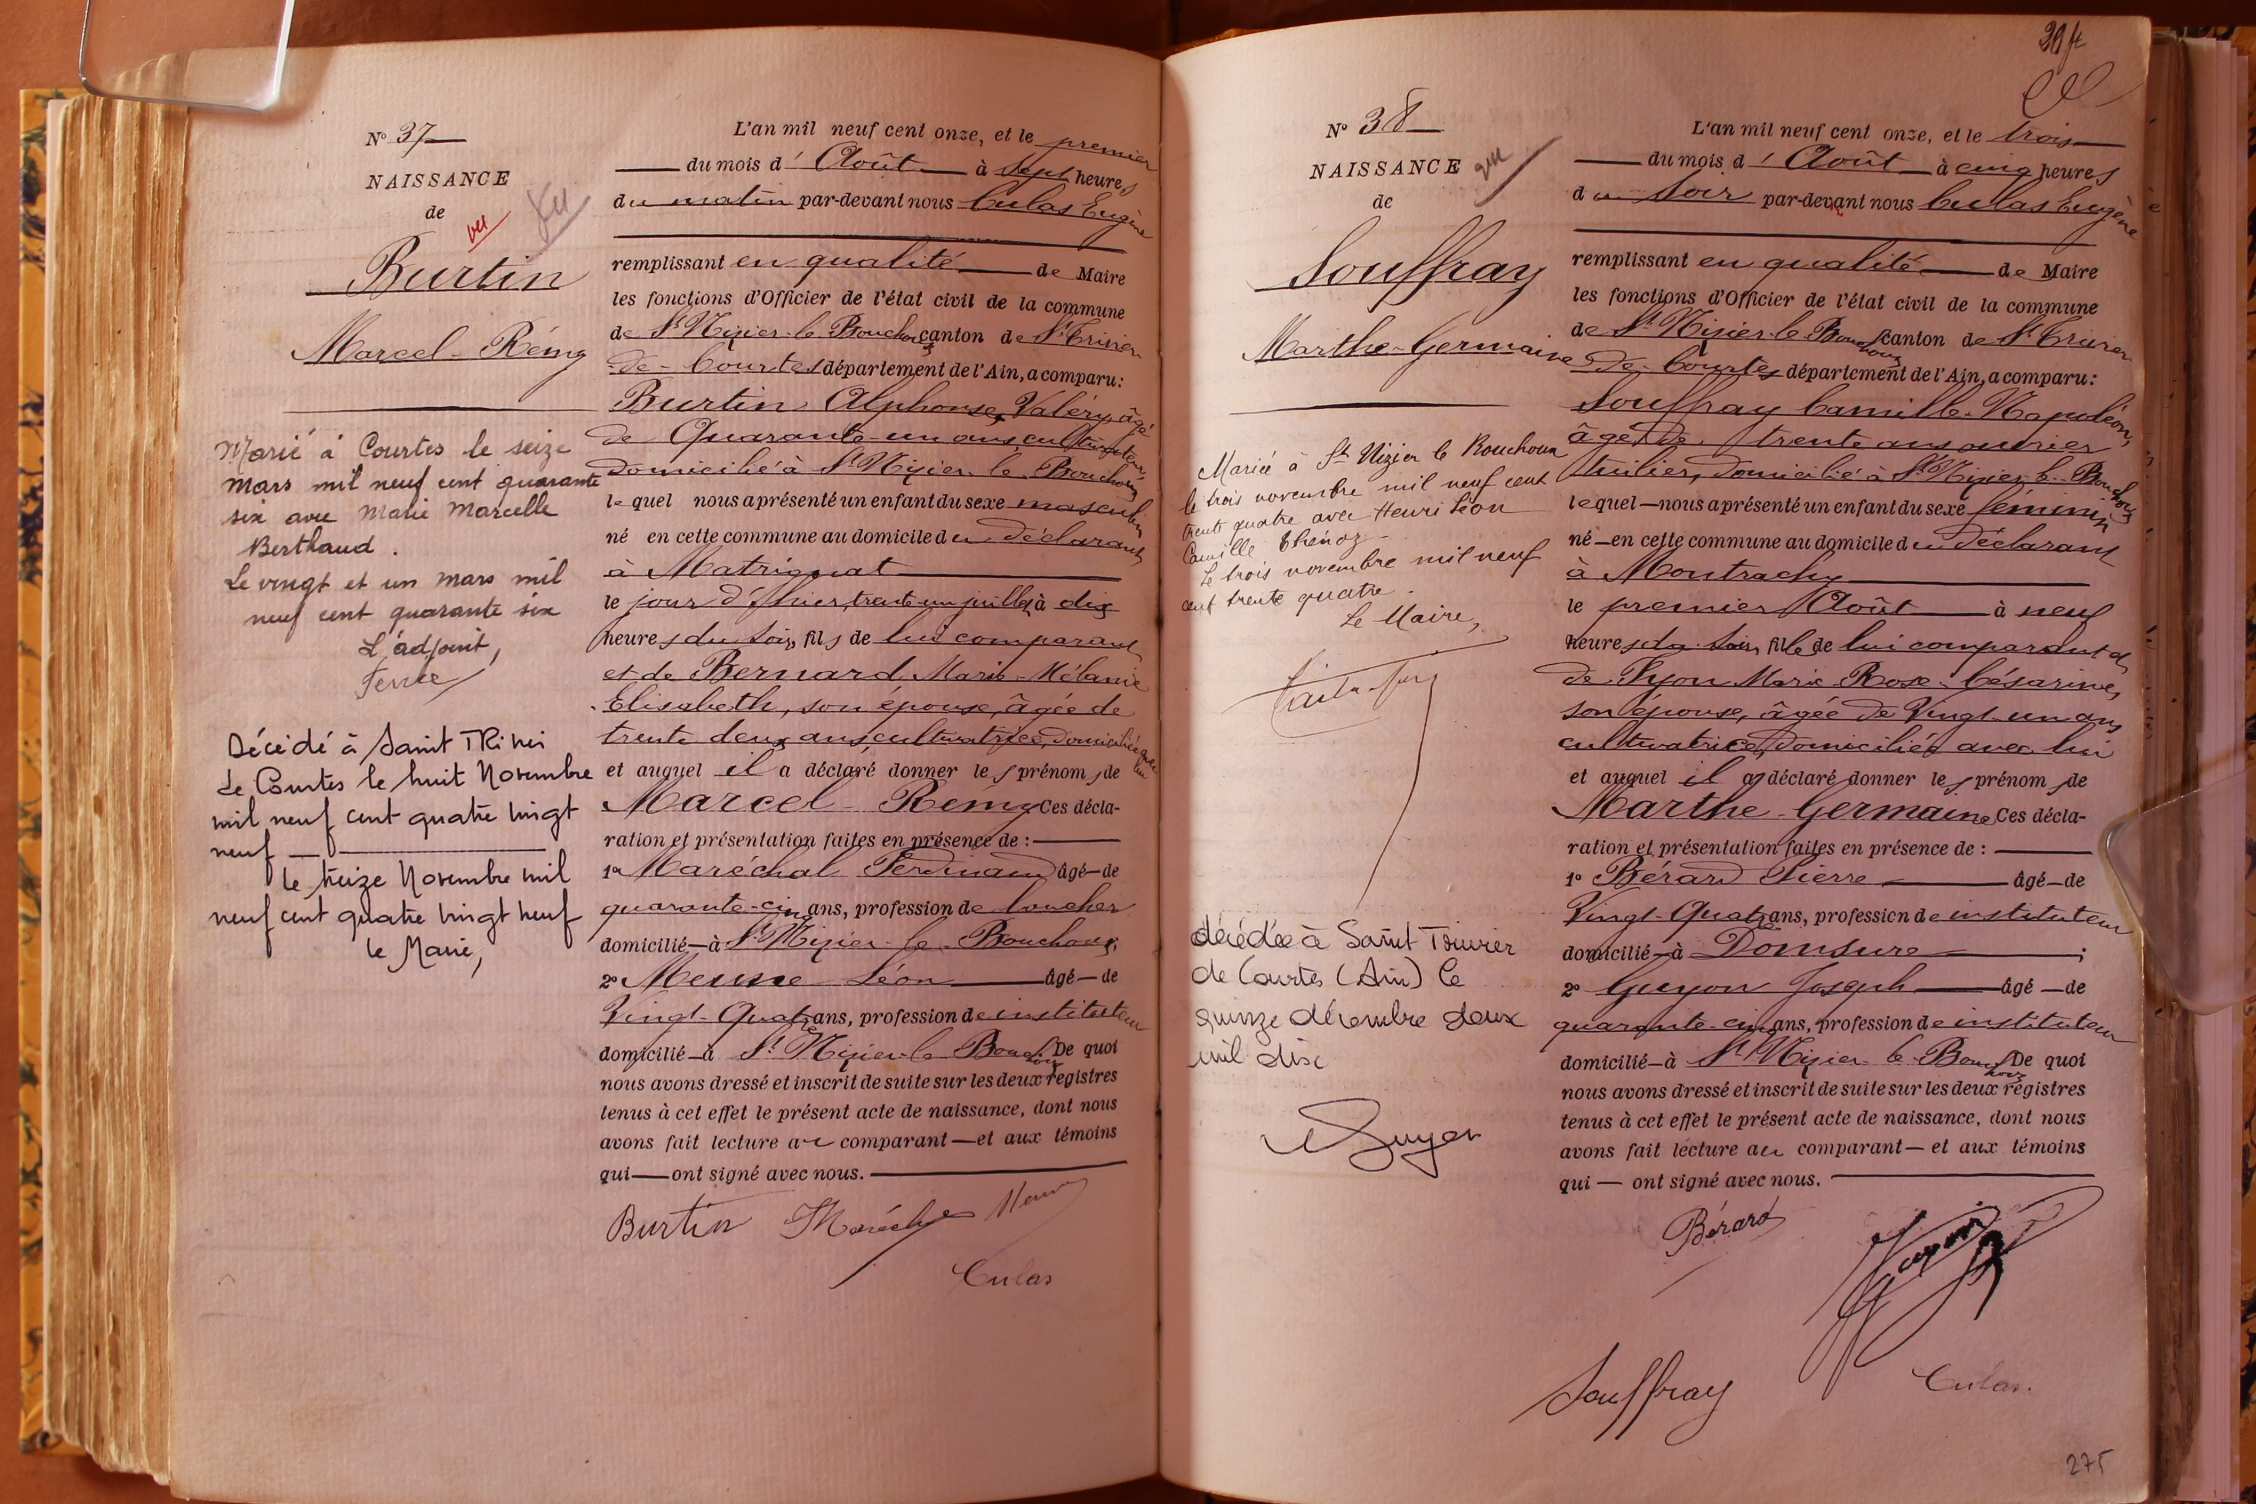 N° 37
NAISSANCE
de
vu
vu
Burtin
Marcel - Rémy
Marié à Courtes le seize
mars mil neuf cent quarante
six avec Marie Marcelle
Berthaud.
Le vingt et un mars mil
neuf cent quarante six
L'adjoint,
Décédé à Saint TRivier
de Courtes le huit Novembre
mil neuf cent quatre vingt
neuf
le treize Novembre mil
neuf cent quatre vingt neuf
le Maire,
L'an mil neuf cent onze, et le premier
du mois d'Août à sept heures
du matin par-devant nous Culas Eugène
remplissant en qualité de Maire
les fonctions d'Officier de l'état civil de la commune
de St Nizier-le-Bouchoux canton de St Trivier
-de-Courtes département de l'Ain, a comparu:
Burtin Alphonse, Valéry, âgé
de Quarante-un ans, cultivateur,
domicilié à St Nizier-le-Bouchoux
lequel nous a présenté un enfant du sexe masculin
né en cette commune au domicile du déclarant
à Matrignat
le jour d'hier, trente-un juillet, à dix
heures du soir, fils de lui comparant
et de Bernard Marie-Mélanie
Elisabeth, son épouse, âgée de
trente deux ans, cultivatrice, domiciliée avec lui
et auquel il a déclaré donner les prénoms de
Marcel - Rémy Ces décla-
ration et présentation faites en présence de :
1° Maréchal Ferdinand âgé de
quarante-cinq ans, profession de boucher
domicilié à St Nizier-le-Bouchoux;
2° Meune Léon âgé de
Vingt-Quatre ans, profession de instituteur
domicilié à St Nizier-le-Bouchoux De quoi
nous avons dressé et inscrit de suite sur les deux registres
tenus à cet effet le présent acte de naissance, dont nous
avons fait lecture au comparant et aux témoins
qui ont signé avec nous.
Burtin Maréchal Meune
Culas
N° 38
NAISSANCE
de
vu
Souffray
Marthe-Germaine
Mariée à St Nizier le Bouchoux
le trois novembre mil neuf cent
trente quatre avec Henri Léon
Camille Thénoz
Le trois novembre mil neuf
cent trente quatre.
Le Maire,
décédée à Saint Trivier
de Courtes (Ain) le
quinze décembre deux
mil dix
L'an mil neuf cent onze, et le trois
du mois d'Août à cinq heures
du soir par-devant nous Culas Eugène
remplissant en qualité de Maire
les fonctions d'Officier de l'état civil de la commune
de St Nizier-le-Bouchoux canton de St Trivier
-de-Courtes département de l'Ain, a comparu:
Souffray Camille-Napoléon,
âgé de trente ans, ouvrier
tuilier, domicilié à St Nizier-le-Bouchoux
lequel nous a présenté un enfant du sexe féminin
né en cette commune au domicile du déclarant
à Montrachy
le premier Août à neuf
heures du soir, fille de lui comparant et
de Pyon Marie Rose-Césarine,
son épouse, âgée de Vingt-un ans
cultivatrice, domiciliée avec lui
et auquel il a déclaré donner les prénoms de
Marthe-Germaine Ces décla-
ration et présentation faites en présence de :
1° Bérard Pierre âgé de
Vingt-Quatre ans, profession de instituteur
domicilié à Domsure ;
2° Guyon Joseph âgé de
quarante-cinq ans, profession de instituteur
domicilié à St Nizier-le-Bouchoux De quoi
nous avons dressé et inscrit de suite sur les deux registres
tenus à cet effet le présent acte de naissance, dont nous
avons fait lecture au comparant et aux témoins
qui ont signé avec nous.
Bérard Guyon
Souffray Culas
275